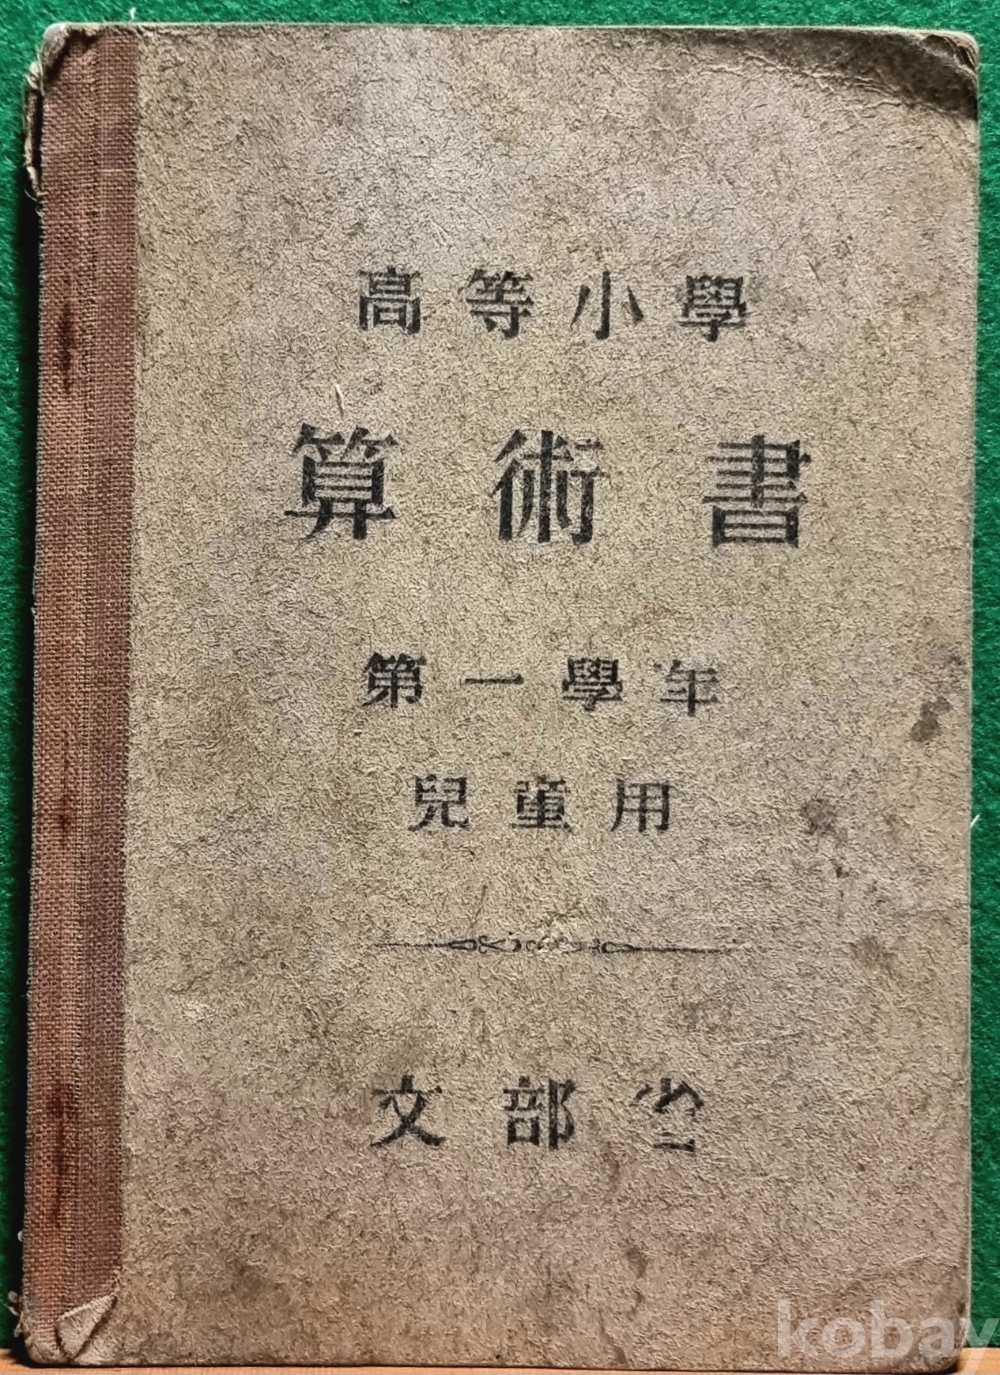 高等小學
算術書
第一學年
兒童用
文部省
kobay